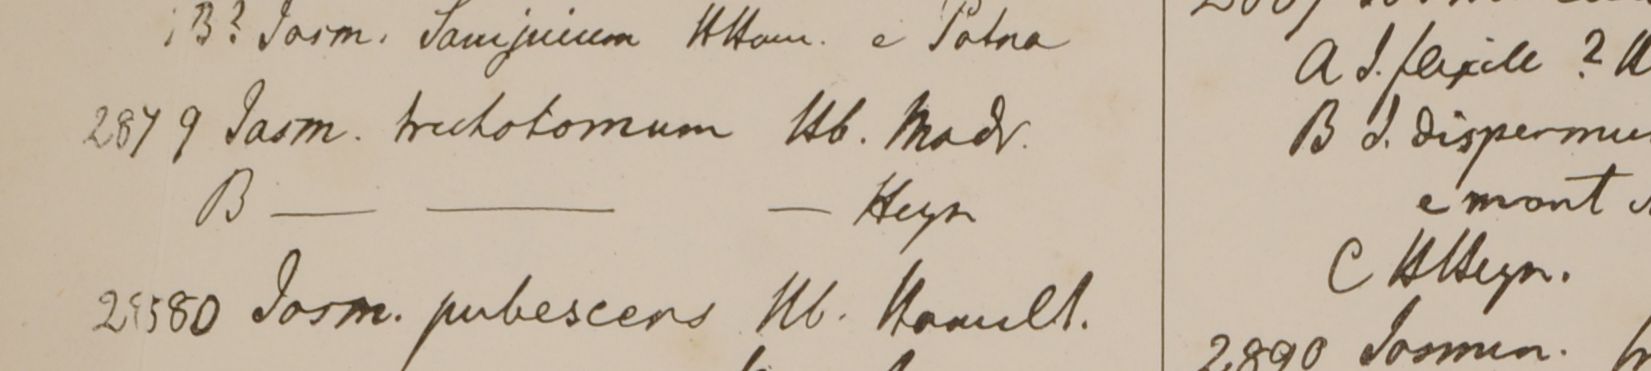 B? Jasm. HHam. e Patna
2879 Jasm. trichotomum Hb. Madr.
B — — — Heyn
2880 Jasm. pubescens Hb. Hamilt.
A J. flexile ? H
B J. dispermu
e mont
C HHeyn.
2890 Jasmin.